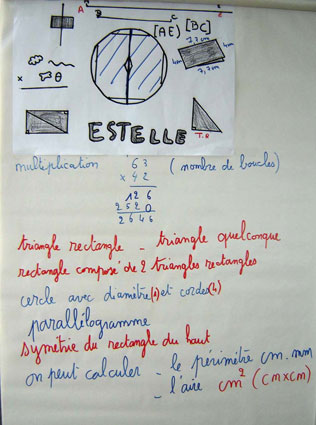 A E
B C
[AE) [BC]
7,2 cm
4cm 4cm
7,2 cm
x θ
ESTELLE T.R
multiplication 63 (nombre de boucles)
x 42
126
2520
2646
triangle rectangle - triangle quelconque
rectangle composé de 2 triangles rectangles
cercle avec diamètre(1) et cordes(4)
parallélogramme
symétrie du rectangle du haut
on peut calculer - le périmètre cm. mm
- l'aire cm² (cm×cm)